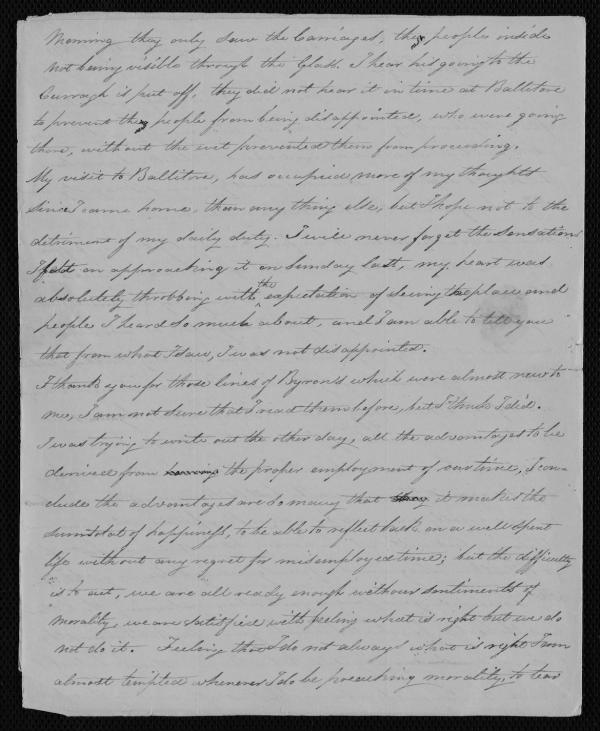 Morning they only saw the Carriages, the people inside
not being visible through the Glass. I hear his going to the
Curragh is put off, they did not hear it in time at Ballitore
to prevent the people from being disappointed, who were going
there, without the wet prevented them from proceeding.
My visit to Ballitore, has occupied more of my thoughts
since I came home, than any thing else, but I hope not to the
detriment of my daily duty. I will never forget the sensations
I felt on approaching it on Sunday last, my heart was
absolutely throbbing with the expectation of seeing the place and
people I heard so much about, and I am able to tell you
that from what I saw, I was not disappointed.
I thank you for those lines of Byron's which were almost new to
me, I am not sure that I read them before, but I think I did.
I was trying to write out the other day, all the advantages to be
derived from the proper employment of our time, I con-
clude the advantages are so many that it makes the
sum total of happiness, to be able to reflect back on a well spent
life without any regret for misemployed time; but the difficulty
"is to act, we are all ready enough with our sentiments of
morality, we are satisfied with feeling what is right but we do
not do it. Feeling that I do not always what is right I am
almost tempted whenever I do be preaching morality, to tear